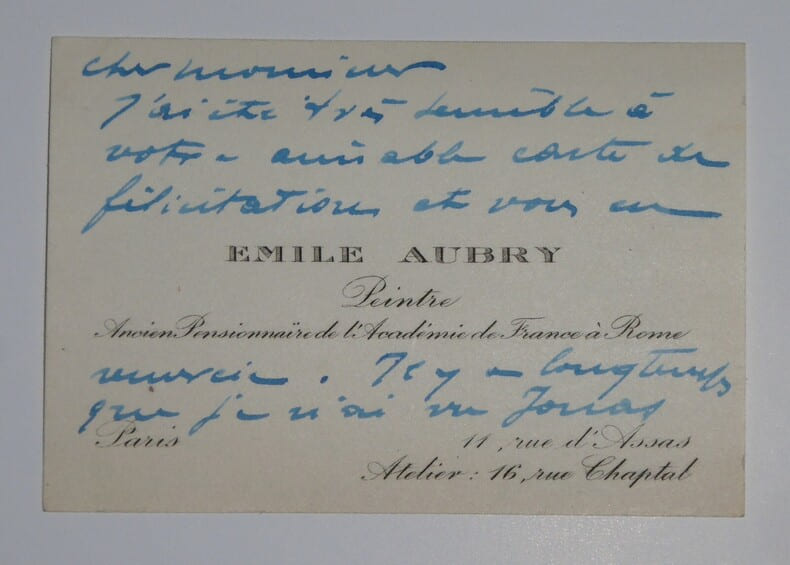 cher monsieur
J'ai été très sensible à
votre aimable carte de
félicitations et vous en
EMILE AUBRY
Peintre
Ancien Pensionnaire de l'Académie de France à Rome
remercie. Il y a longtemps
que je n'ai vu Jonas
Paris 11, rue d'Assas
Atelier: 16, rue Chaptal